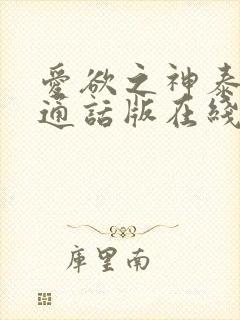 愛欲之神泰
通話版在綫
庫里南